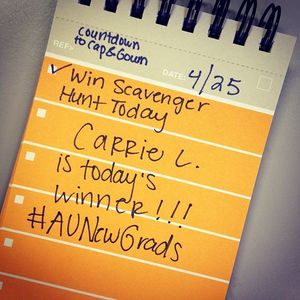 Countdown
to Cap & Gown
REF:
DATE: 4/25
✓ Win Scavenger
Hunt Today
CARRIE L.
is today's
winner!!!
#AUNewGrads